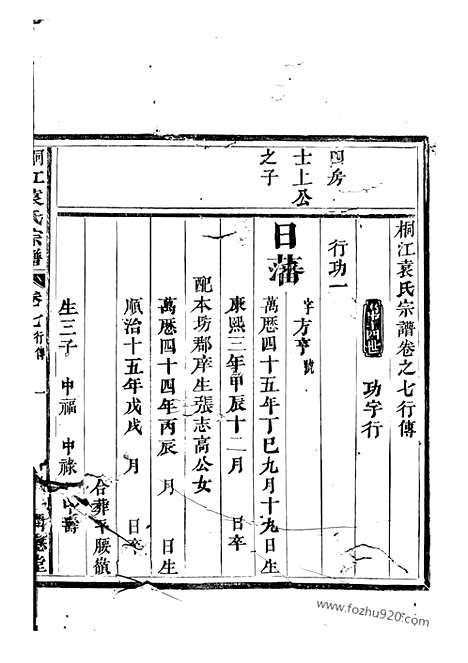 桐江袁氏宗譜卷之七行傳
功字行
行功一
四房
士上公
之子
日藩
字方亨 號
萬曆四十五年丁巳九月十九日生
康熙三年甲辰十二月 日卒
配本坊郡庠生張志高公女
萬曆四十四年丙辰 月 日生
順治十五年戊戌 月 日卒
合葬平腰嶺
生三子 中福 中祿 中壽
桐江袁氏宗譜 卷七行傳 一
www.fozhu920.com